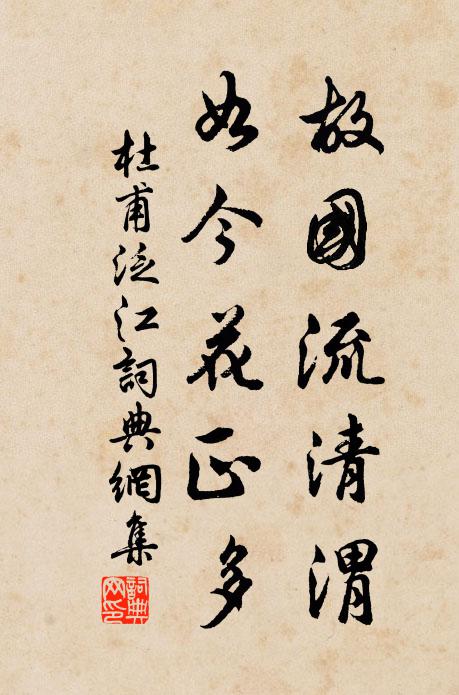 故國流清渭
如今花正多
杜甫泛江詞典網集
詞典網印